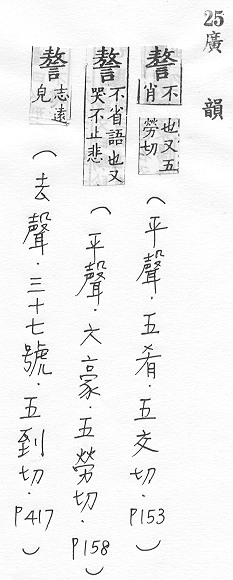 25廣韻
謷不肖也又五勞切（平聲．五肴．五交切．P153）
謷不省語也又哭不止悲（平聲．六豪．五勞切．P158）
謷志遠皃（去聲．三十七號．五到切．P417）